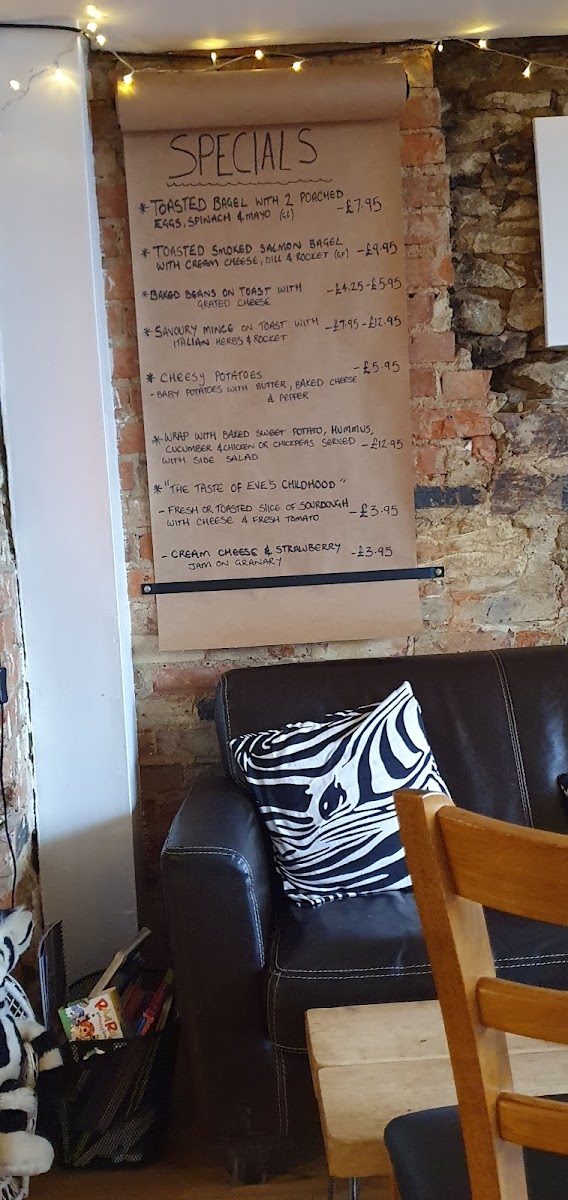 SPECIALS
* TOASTED BAGEL WITH 2 POACHED
EGGS, SPINACH & MAYO (GF) - £7.95
* TOASTED SMOKED SALMON BAGEL
WITH CREAM CHEESE, DILL & ROCKET (GF) - £9.95
* BAKED BEANS ON TOAST WITH - £4.25 - £5.95
GRATED CHEESE
* SAVOURY MINCE ON TOAST WITH - £7.95 - £12.95
ITALIAN HERBS & ROCKET
* CHEESY POTATOES - £5.95
- BABY POTATOES WITH BUTTER, BAKED CHEESE
& PEPPER
* WRAP WITH BAKED SWEET POTATO, HUMMUS,
CUCUMBER & CHICKEN OR CHICKPEAS SERVED - £12.95
WITH SIDE SALAD
* "THE TASTE OF EVE'S CHILDHOOD"
- FRESH OR TOASTED SLICE OF SOURDOUGH - £3.95
WITH CHEESE & FRESH TOMATO
- CREAM CHEESE & STRAWBERRY - £3.95
JAM ON GRANARY